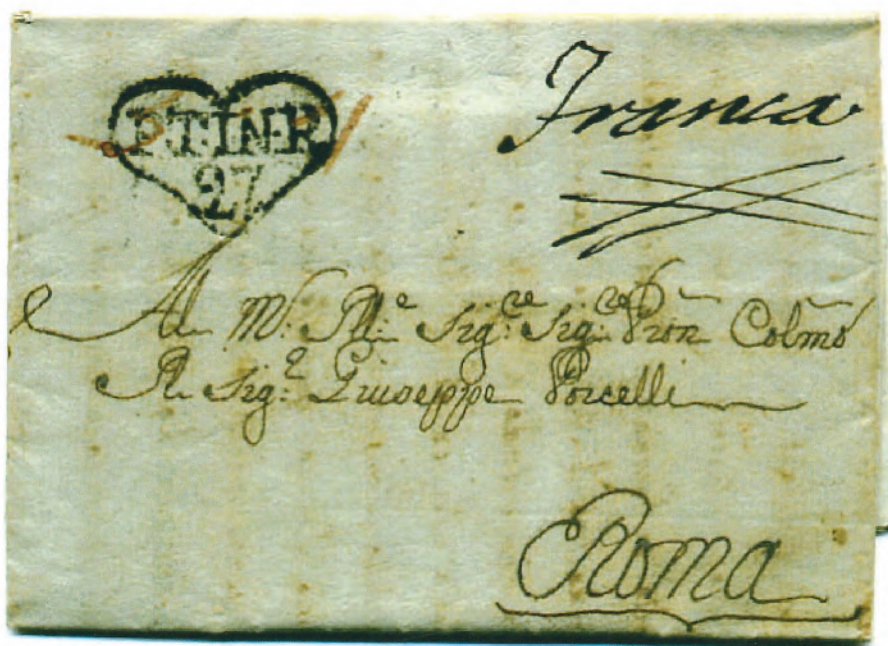 PT. IN. R
27
Franca
Al M: Ill:e Sig:re Sig:re Pron Colmo
Il Sig:e Giuseppe Porcelli
Roma